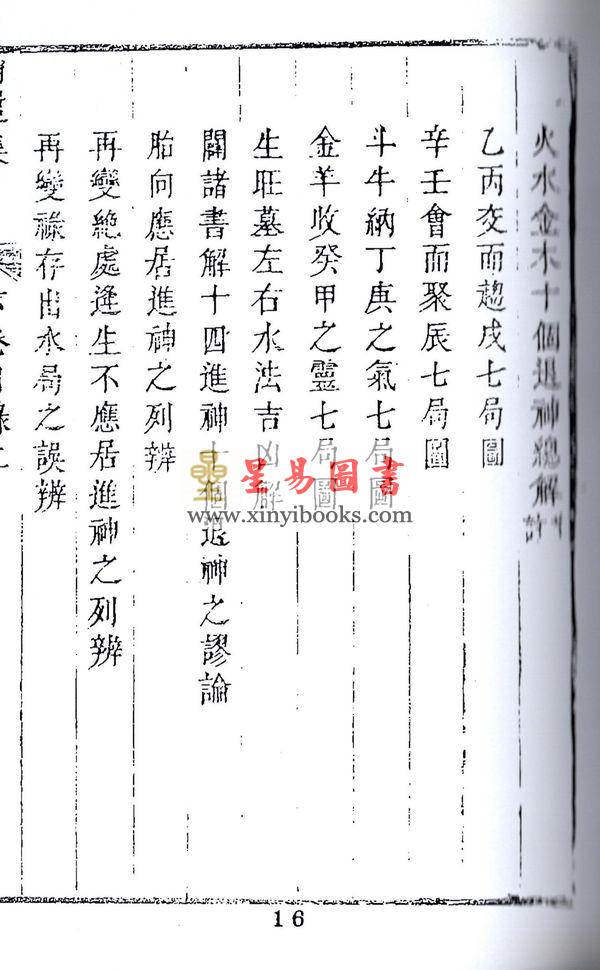 火水金木十個退神總解
乙丙交而趨戌七局圖
辛壬會而聚辰七局圖
斗牛納丁庚之氣七局圖
金羊收癸甲之靈七局圖
生旺墓左右水法吉凶解
闢諸書解十四進神十個退神之謬論
胎向應居進神之列辨
再變絕處逢生不應居進神之列辨
再變祿存出水局之誤辨
星易圖書
www.xinyibooks.com
16